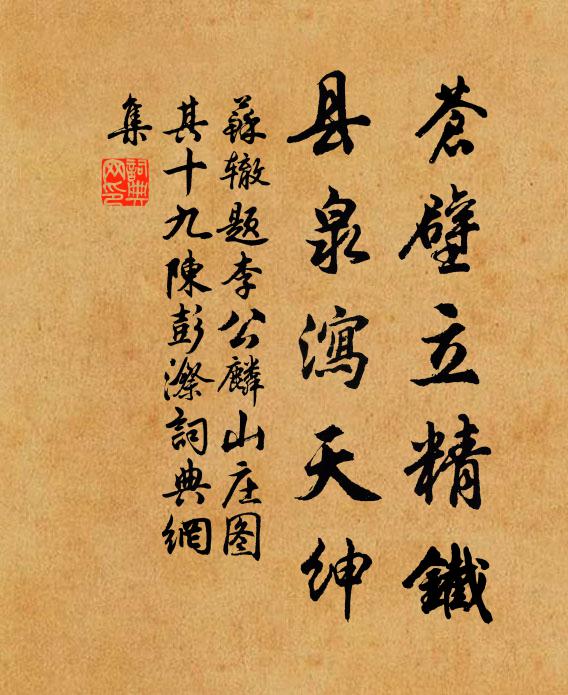 蒼壁立精鐵
县泉瀉天紳
蘇辙题李公麟山庄图
其十九陳彭漈詞典網
集
詞典网印